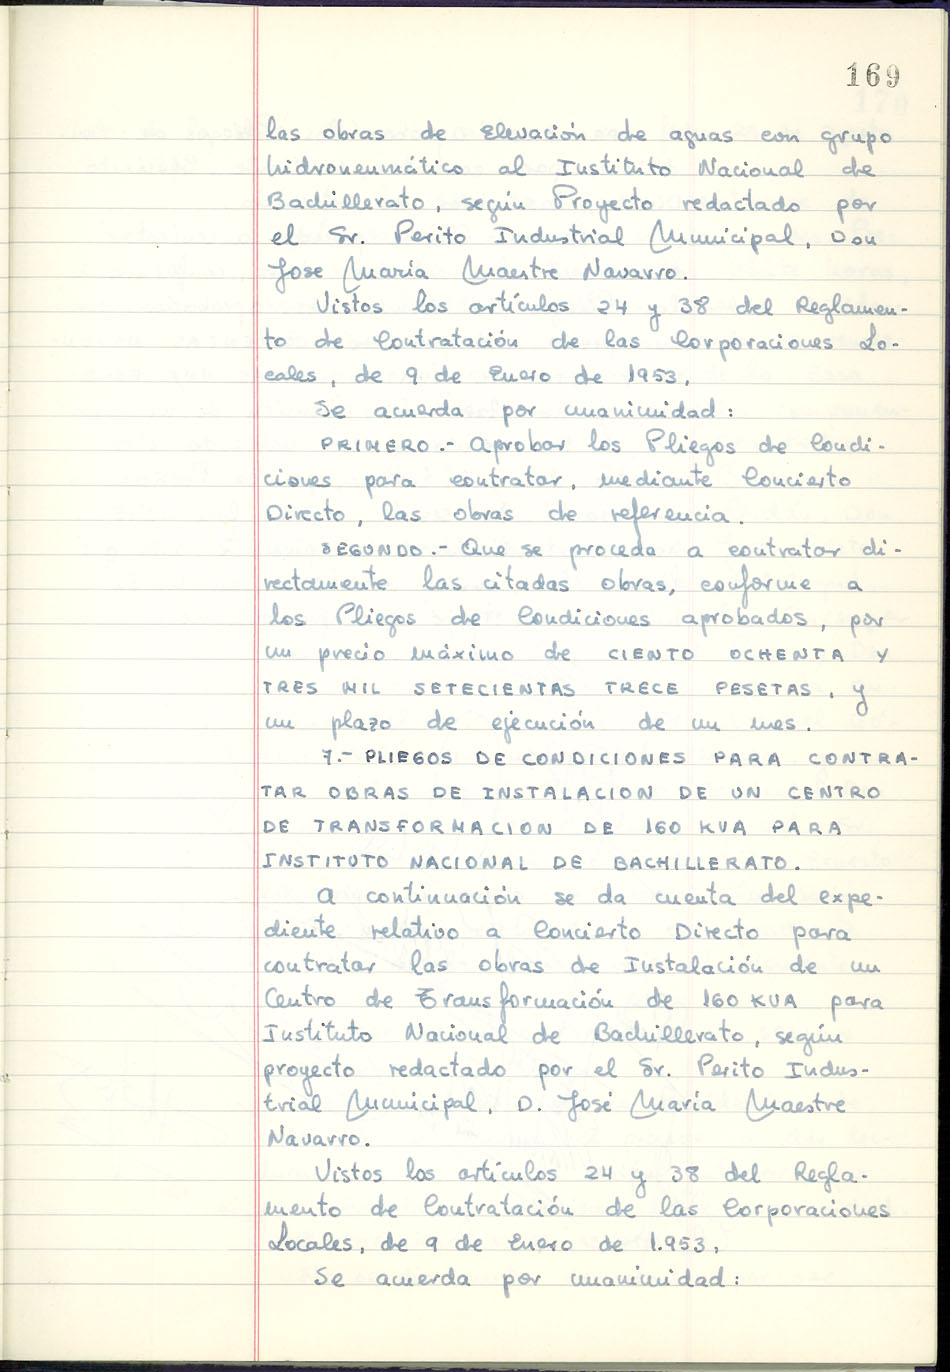 169
las obras de Elevación de aguas con grupo
hidroneumático al Instituto Nacional de
Bachillerato, según Proyecto redactado por
el Sr. Perito Industrial Municipal, Don
Jose María Maestre Navarro.
Vistos los artículos 24 y 38 del Reglamen-
to de Contratación de las Corporaciones Lo-
cales, de 9 de Enero de 1953,
Se acuerda por unanimidad:
PRIMERO.- Aprobar los Pliegos de Condi-
ciones para contratar, mediante Concierto
Directo, las obras de referencia.
SEGUNDO.- Que se proceda a contratar di-
rectamente las citadas obras, conforme a
los Pliegos de Condiciones aprobados, por
un precio máximo de CIENTO OCHENTA Y
TRES MIL SETECIENTAS TRECE PESETAS, y
un plazo de ejecución de un mes.
7.- PLIEGOS DE CONDICIONES PARA CONTRA-
TAR OBRAS DE INSTALACION DE UN CENTRO
DE TRANSFORMACION DE 160 KVA PARA
INSTITUTO NACIONAL DE BACHILLERATO.
A continuación se da cuenta del expe-
diente relativo a Concierto Directo para
contratar las obras de Instalación de un
Centro de Transformación de 160 KVA para
Instituto Nacional de Bachillerato, según
proyecto redactado por el Sr. Perito Indus-
trial Municipal, D. José María Maestre
Navarro.
Vistos los artículos 24 y 38 del Regla-
mento de Contratación de las Corporaciones
Locales, de 9 de Enero de 1.953,
Se acuerda por unanimidad: